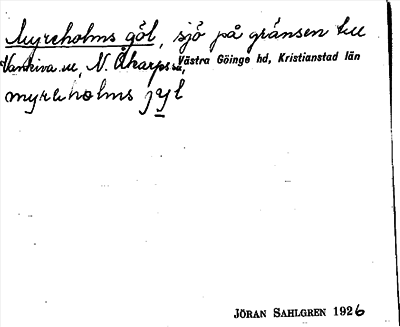 Myreholms göl, sjö på gränsen till
Vankiva sn, N. Åkarps sn, Västra Göinge hd, Kristianstad län
myreholms jyl
JÖRAN SAHLGREN 1926